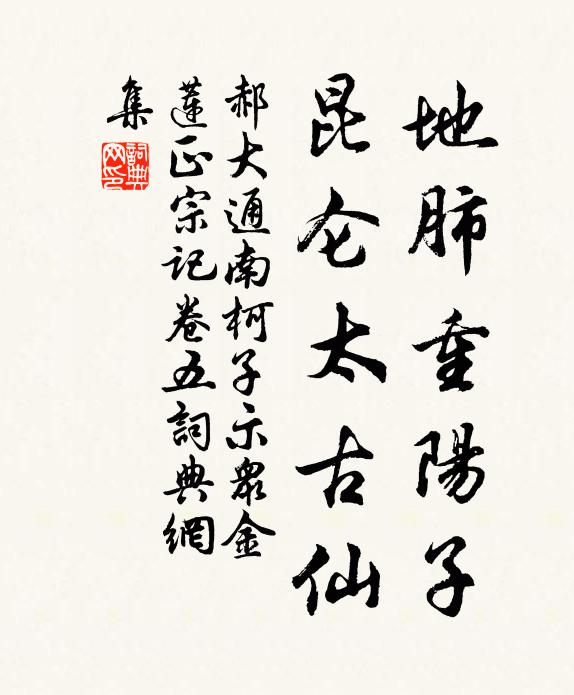 地肺重陽子
昆仑太古仙
郝大通南柯子示衆金
蓮正宗记卷五詞典網
集
詞典
网印